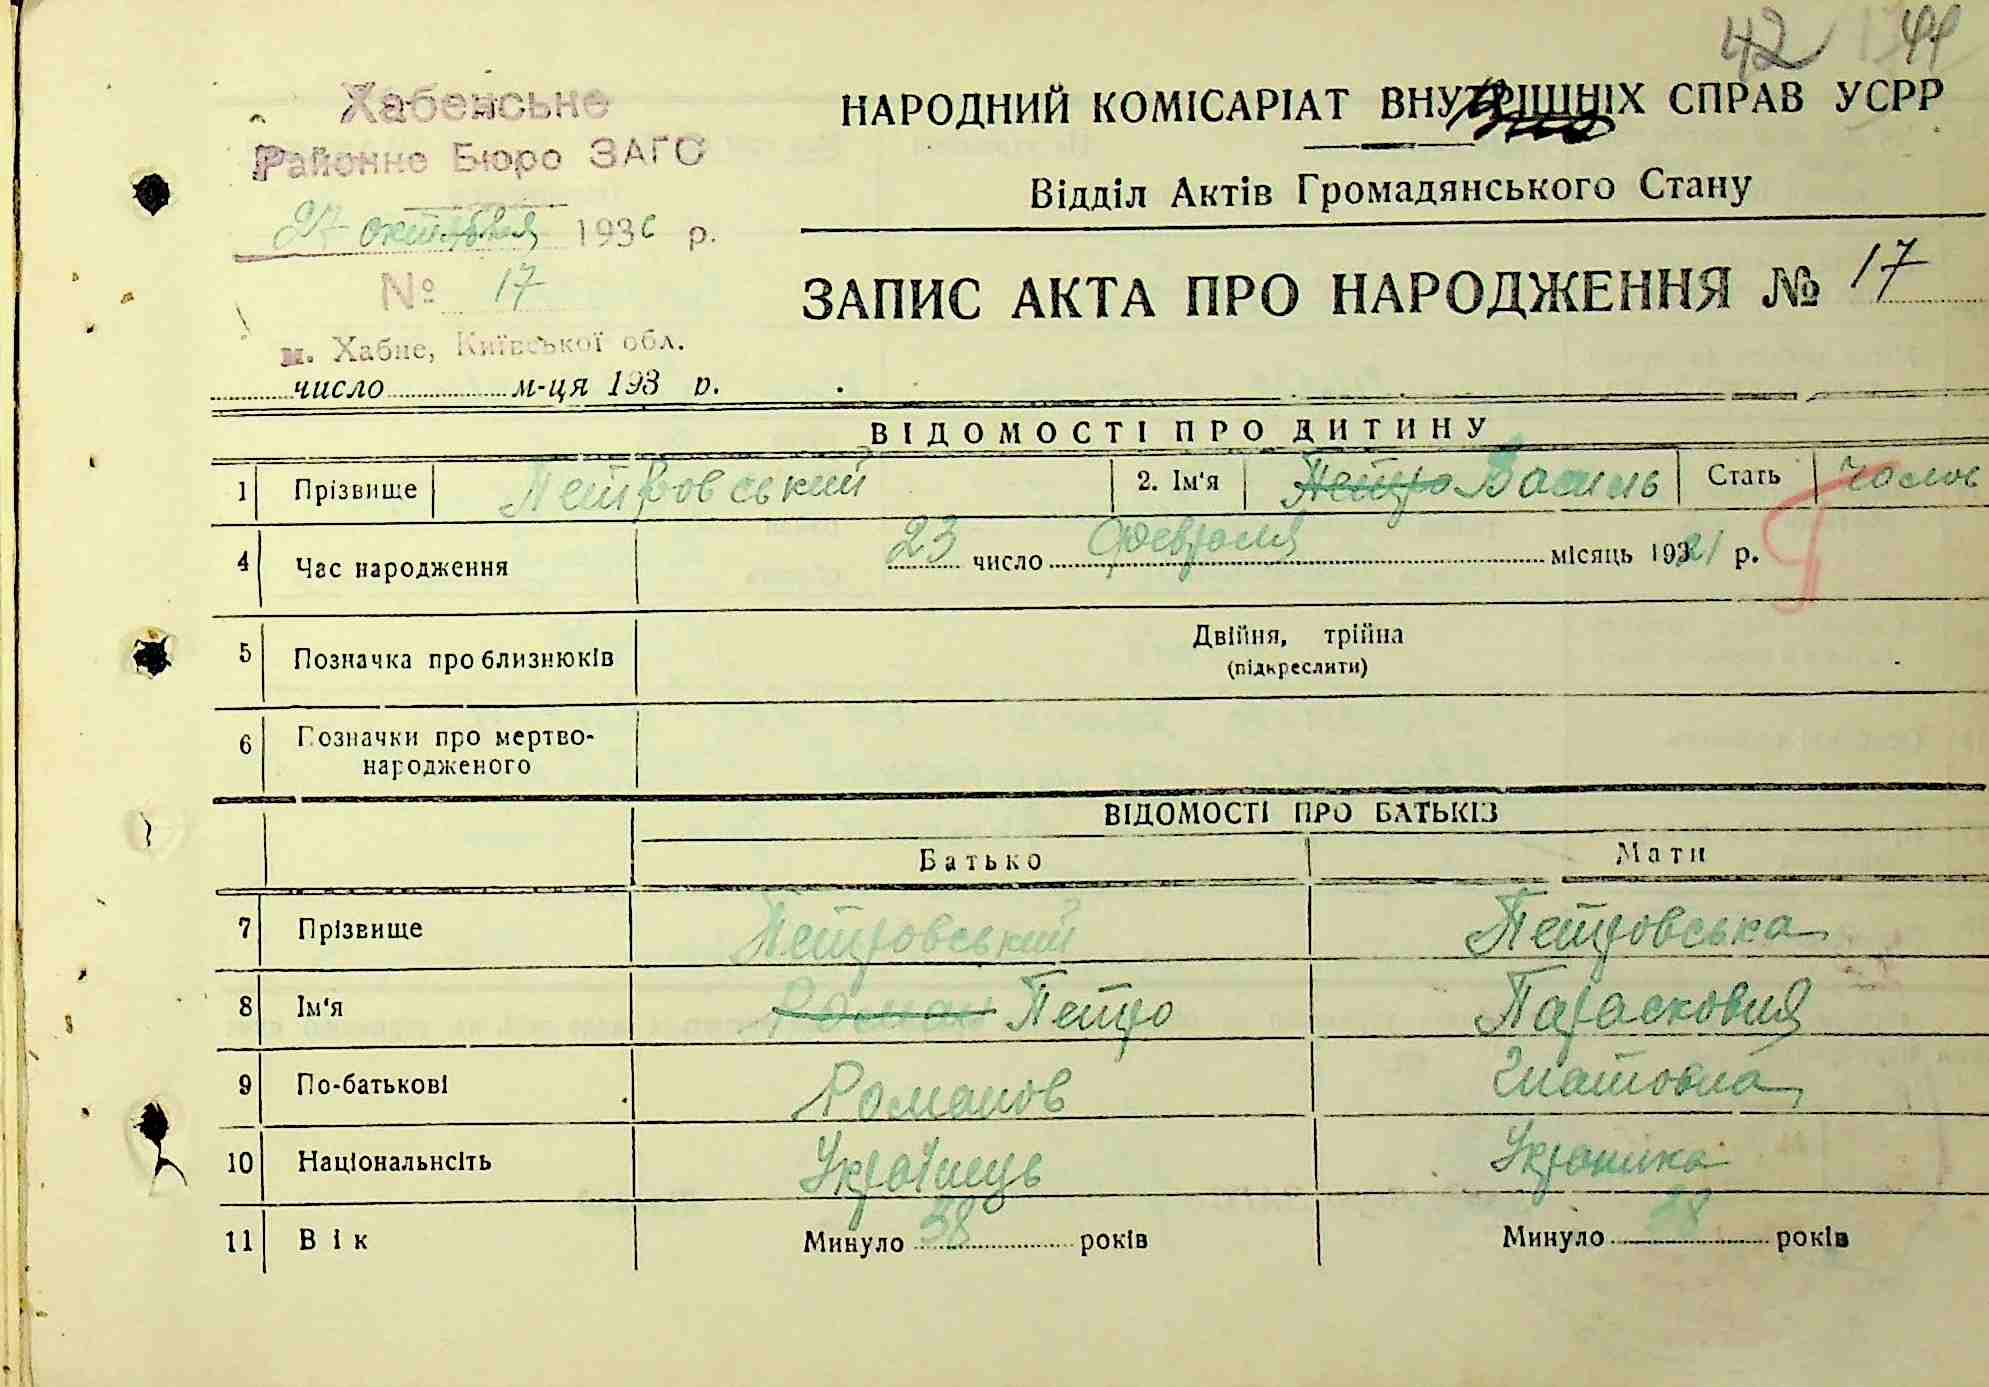 42 44
Хабенське
Районне Бюро ЗАГС
27 октября 1936 р.
№ 17
м. Хабне, Київської обл.
число м-ця 193 р.
НАРОДНИЙ КОМІСАРІАТ ВНУТРІШНІХ СПРАВ УСРР
Відділ Актів Громадянського Стану
ЗАПИС АКТА ПРО НАРОДЖЕННЯ № 17
ВІДОМОСТІ ПРО ДИТИНУ
1 Прізвище Петровський 2. Ім'я Петро Василь Стать чолов
4 Час народження 23 число февраля місяць 1921 р.
5 Позначка про близнюків Двійня, трійна
(підкреслити)
6 Позначки про мертво-
народженого
ВІДОМОСТІ ПРО БАТЬКІВ
Батько Мати
7 Прізвище Петровський Петровська
8 Ім'я Роман Петро Парасковия
9 По-батькові Романов Гнатовна
10 Національнсіть Українець Украинка
11 Вік Минуло 38 років Минуло 38 років